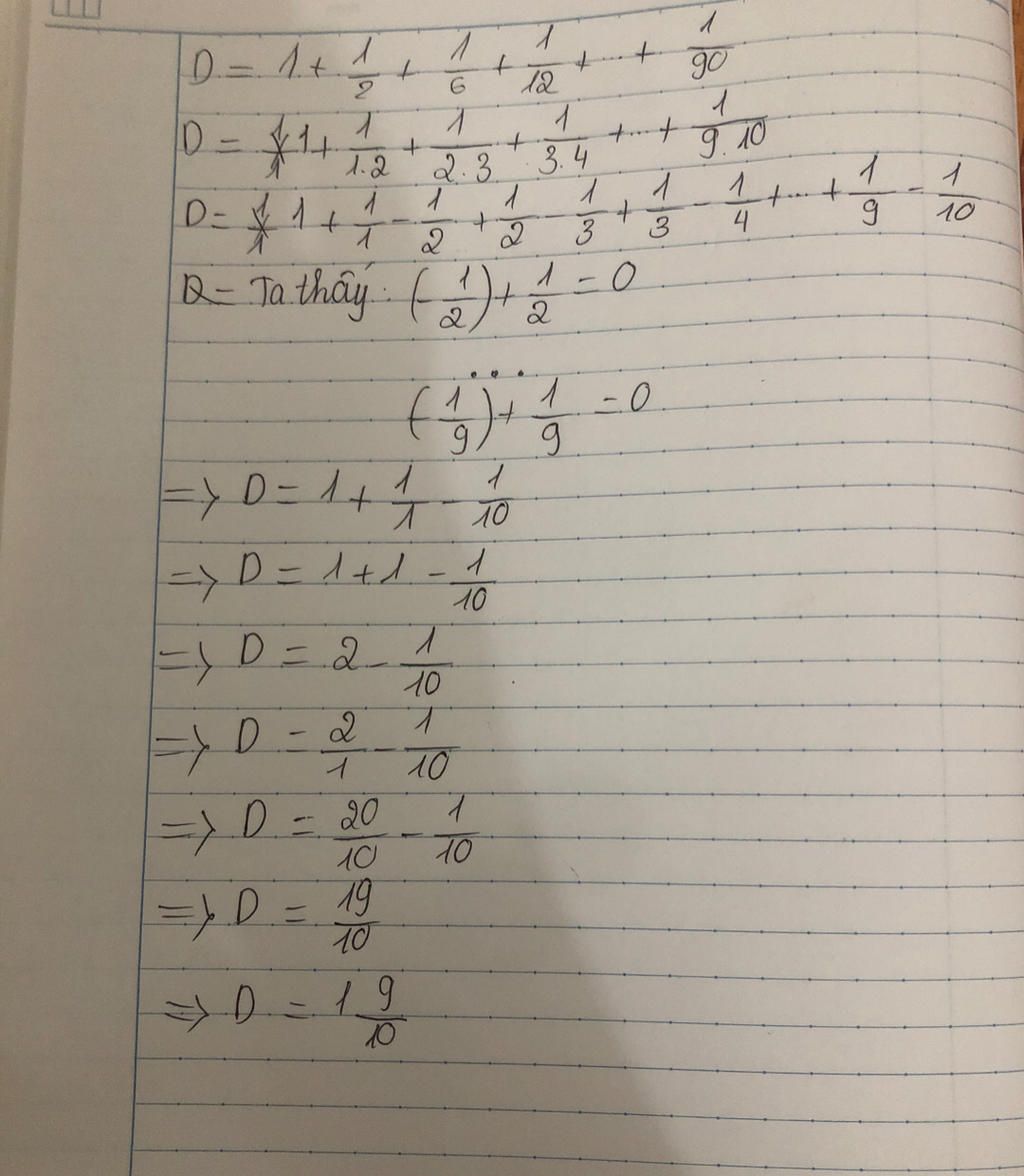 D = 1 + 1/2 + 1/6 + 1/12 + ... + 1/90
D = 1 + 1/1.2 + 1/2.3 + 1/3.4 + ... + 1/9.10
D = 1 + 1/1 - 1/2 + 1/2 - 1/3 + 1/3 - 1/4 + ... + 1/9 - 1/10
Ta thấy: (-1/2) + 1/2 = 0
...
(-1/9) + 1/9 = 0
=> D = 1 + 1/1 - 1/10
=> D = 1 + 1 - 1/10
=> D = 2 - 1/10
=> D = 2/1 - 1/10
=> D = 20/10 - 1/10
=> D = 19/10
=> D = 1 9/10